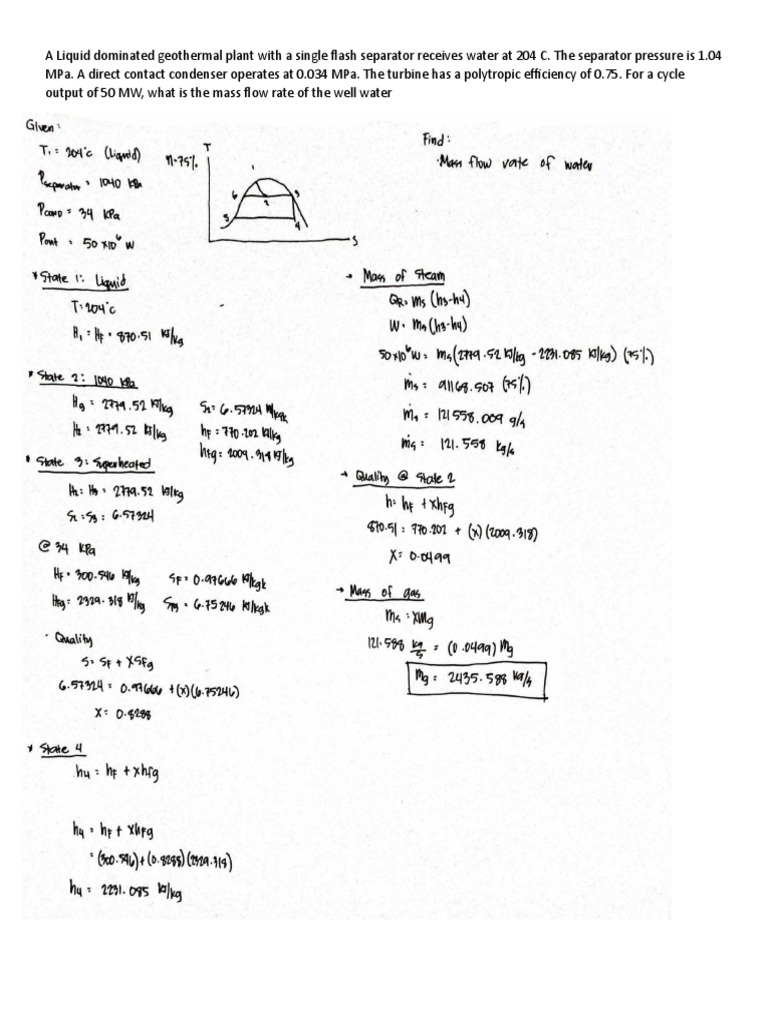 A Liquid dominated geothermal plant with a single flash separator receives water at 204 C. The separator pressure is 1.04
MPa. A direct contact condenser operates at 0.034 MPa. The turbine has a polytropic efficiency of 0.75. For a cycle
output of 50 MW, what is the mass flow rate of the well water
Given:
T₁ = 204°C (Liquid)
η=75%
Pseparator = 1040 kPa
Pcond = 34 kPa
Pout = 50 x10⁶ W
T
1
6
2
3
5
4
S
Find:
·Mass flow rate of water
* State 1: Liquid
T=204°C
H₁ = Hf = 870.51 kJ/kg
* State 2: 1040 kPa
Hg = 2779.52 kJ/kg
H₂ = 2779.52 kJ/kg
S₂ = 6.57324 kJ/kgk
hf = 770.202 kJ/kg
hfg = 2009.318 kJ/kg
* State 3: Superheated
H₂ = H₃ = 2779.52 kJ/kg
S₂ = S₃ = 6.57324
@ 34 kPa
Hf = 300.546 kJ/kg
Hfg = 2329.318 kJ/kg
SF = 0.97666 kJ/kgk
Sfg = 6.75246 kJ/kgk
· Quality
S = Sf + XSfg
6.57324 = 0.97666 + (x)(6.75246)
X = 0.8288
* State 4
h4 = hf + xhfg
h4 = hf + xhfg
= (300.546) + (0.8288)(2329.318)
h4 = 2231.085 kJ/kg
→ Mass of Steam
QR = ms (h3-h4)
W = ms (h3-h4)
50x10⁶ W = ms (2779.52 kJ/kg - 2231.085 kJ/kg) (75%)
ṁs = 91168.507 (75%)
ṁs = 121558.009 g/s
ṁs = 121.558 kg/s
→ Quality @ State 2
h = hf + xhfg
870.51 = 770.202 + (x)(2009.318)
X = 0.0499
→ Mass of gas
ms = xmg
121.588 kg/s = (0.0499) mg
mg = 2435.588 kg/s